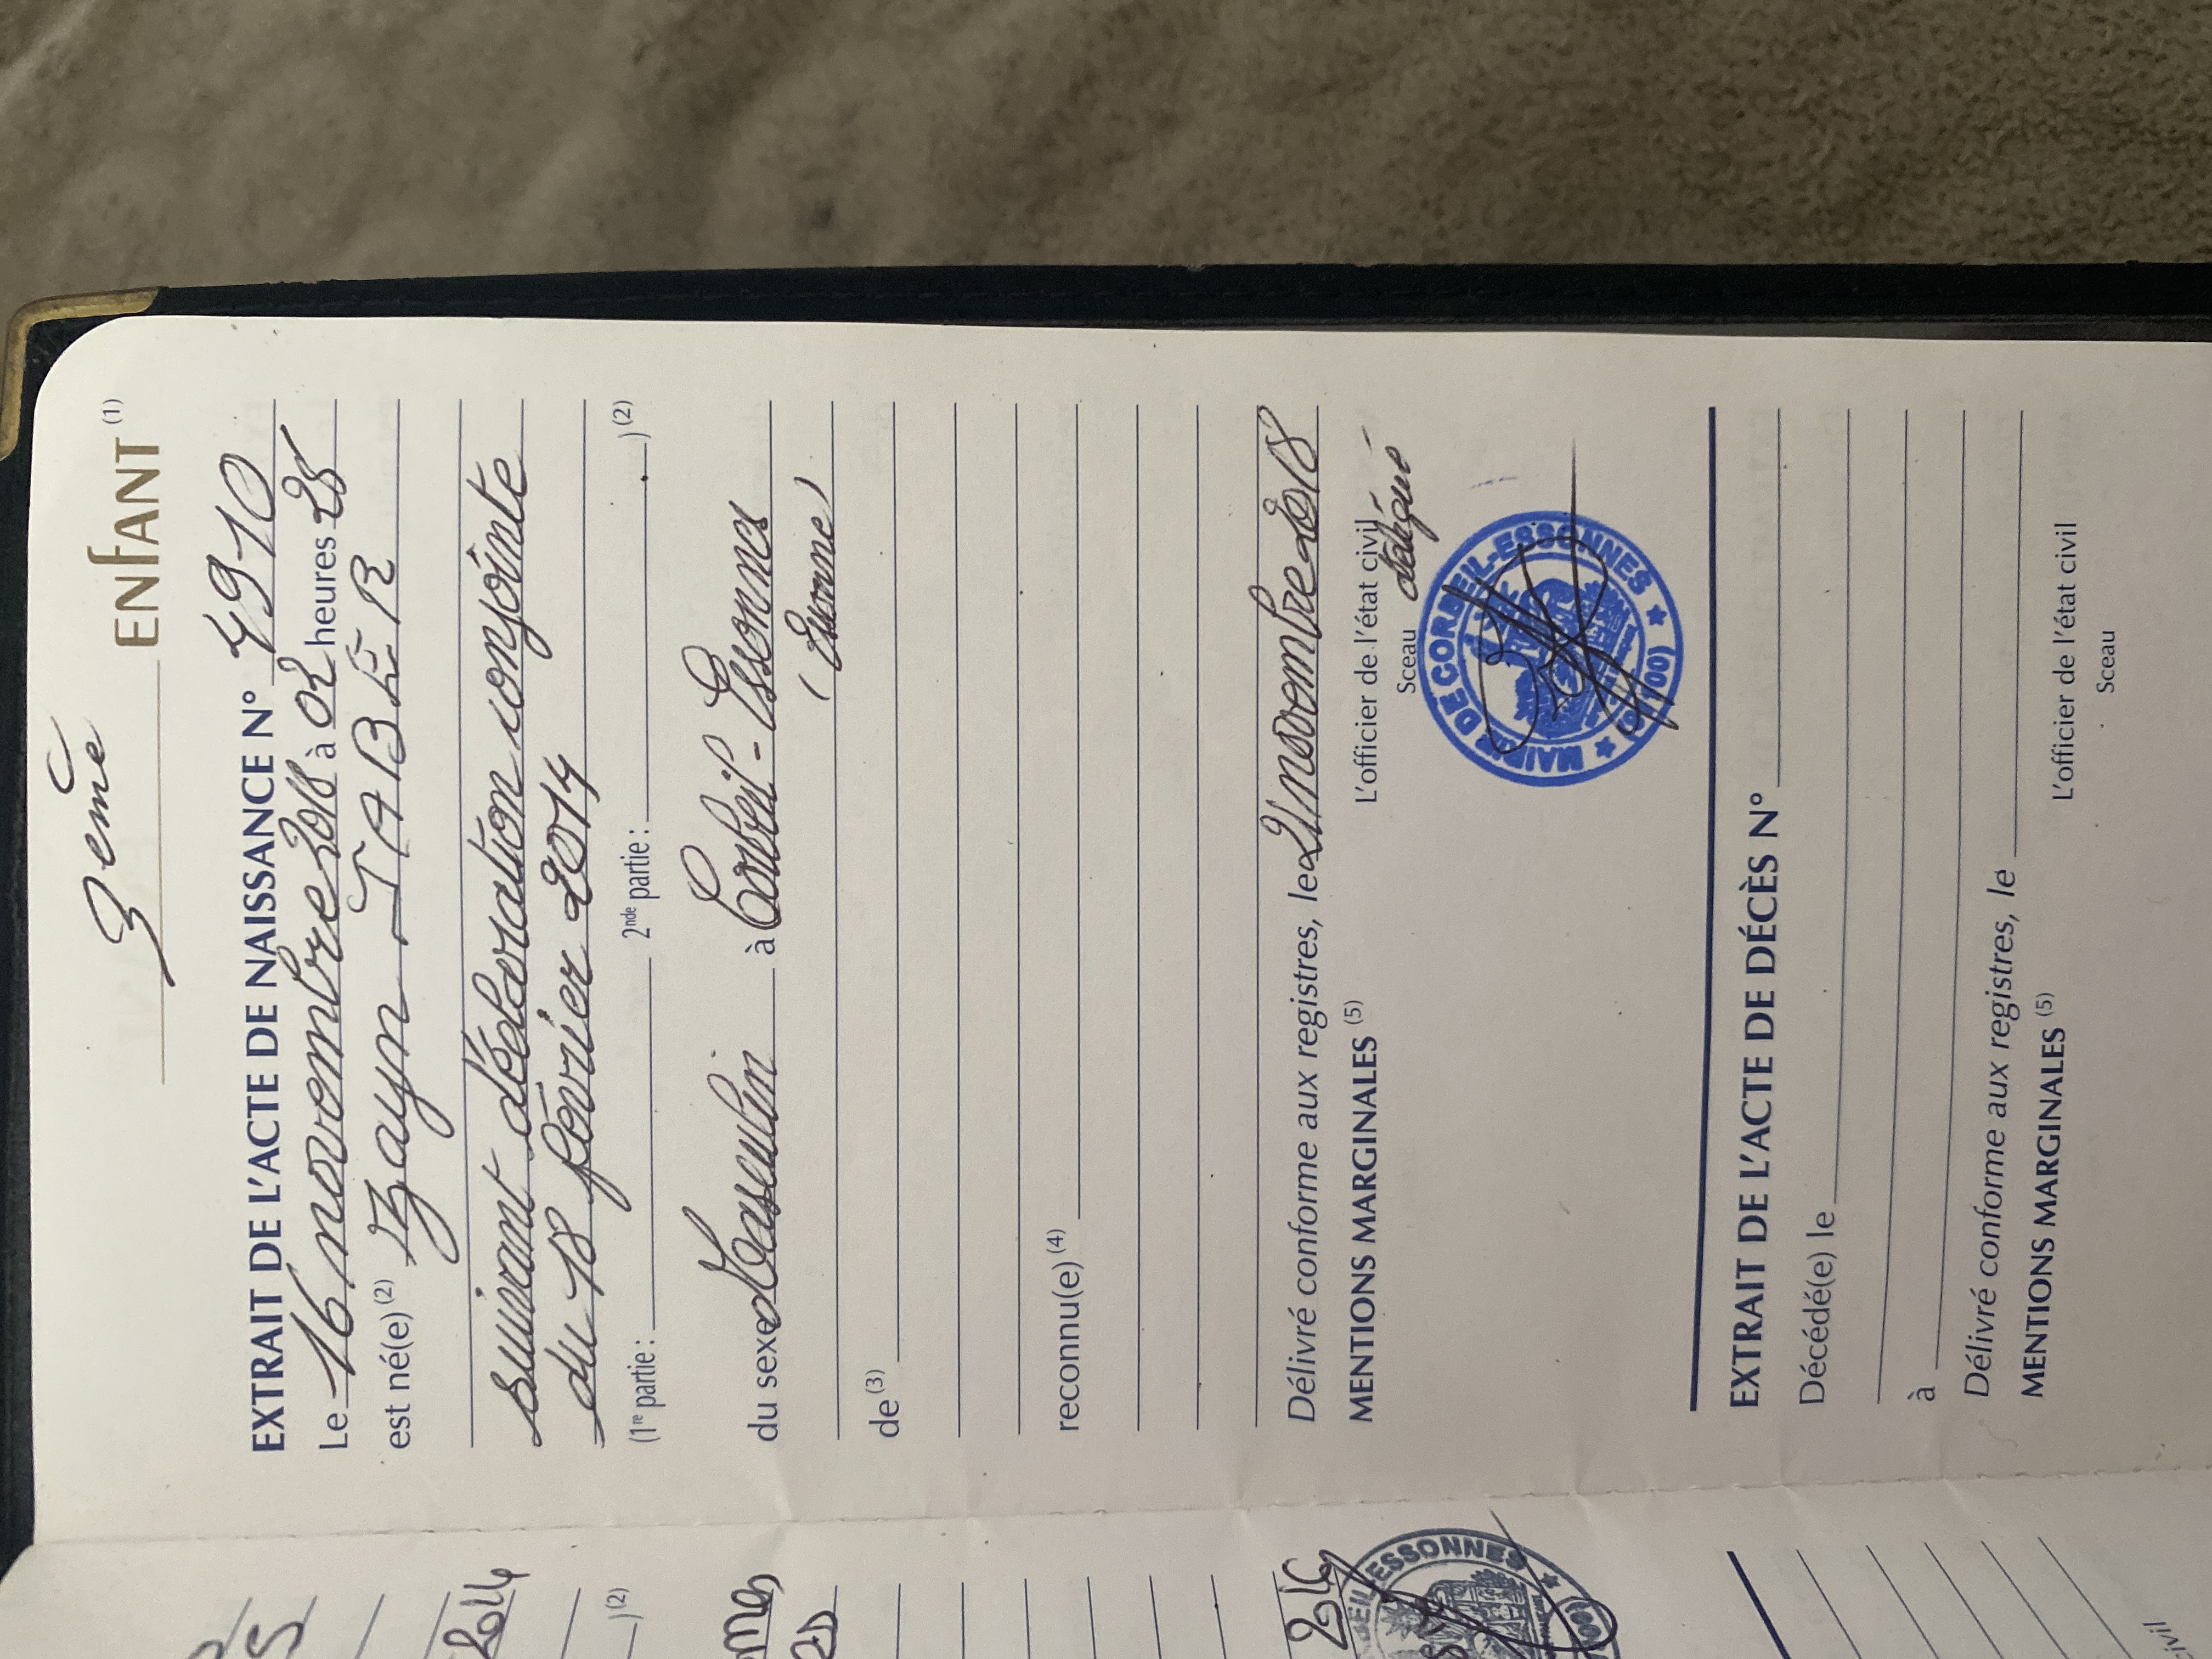 3ème ENFANT (1)
EXTRAIT DE L'ACTE DE NAISSANCE N° 4910
Le 16 novembre 2018 à 02 heures 28
est né(e) (2) Izayn JABER
suivant déclaration conjointe
du 18 février 2014
(1re partie : 2nde partie : ) (2)
du sexe Masculin à Corbeil-Essonnes
(Essonne)
de (3)
reconnu(e) (4)
Délivré conforme aux registres, le 21 novembre 2018
MENTIONS MARGINALES (5)
L'officier de l'état civil
délégué
Sceau
MAIRIE DE CORBEIL-ESSONNES ★ (91100) ★
EXTRAIT DE L'ACTE DE DÉCÈS N°
Décédé(e) le
à
Délivré conforme aux registres, le
MENTIONS MARGINALES (5)
L'officier de l'état civil
Sceau
2014
) (2)
2016
BEIL-ESSONNES ★
civil